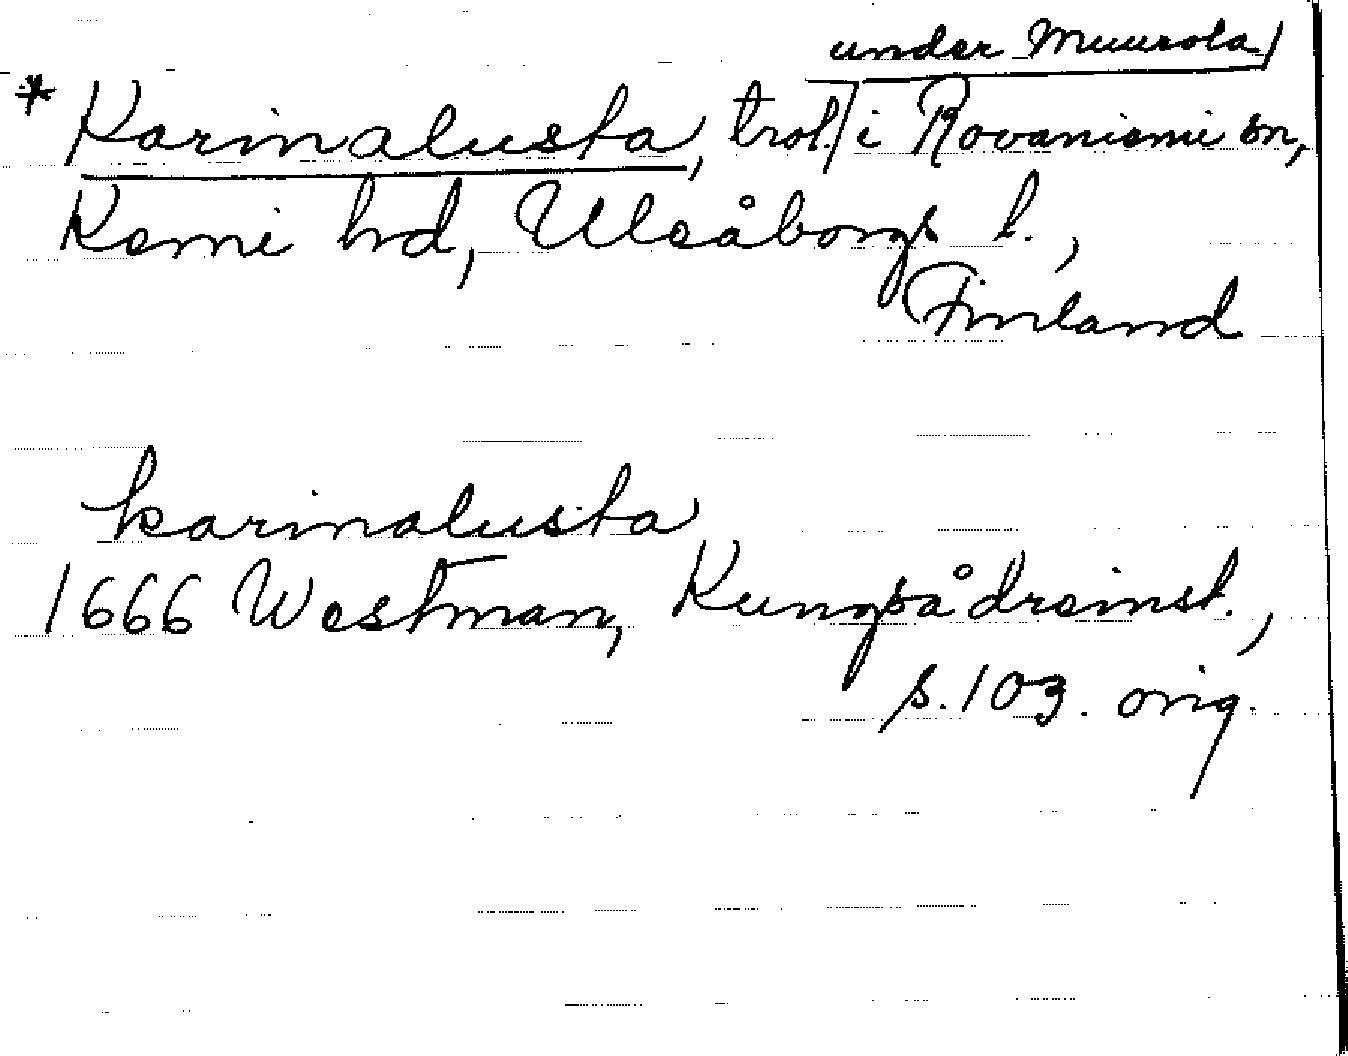 under Muurola
* Karinalusta, trol. i Rovaniemi sn,
Kemi hd, Uleåborgs l.,
Finland
karinalusta
1666 Westman, Kungsådreinst.,
s. 103. orig.